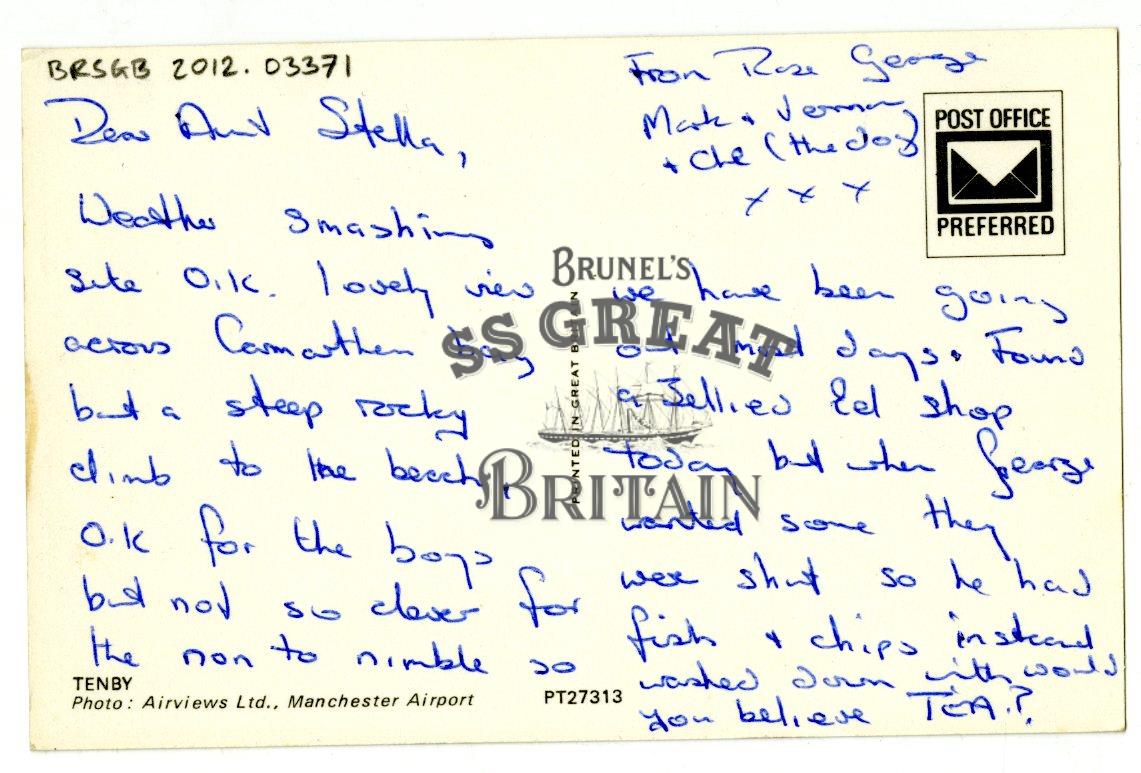 BRSGB 2012.03371
Dear Aunt Stella,
Weather smashing
site O.K. lovely view
across Carmarthen bay
but a steep rocky
climb to the beach,
O.K for the boys
but not so clever for
the non to nimble so
we have been going
out most days. Found
a Jellied Eel shop
today but when George
wanted some they
were shut so he had
fish & chips instead
washed down with would
you believe TEA.?
From Rose George
Mark & Vernon
+ Che (the dog)
x x x
POST OFFICE
PREFERRED
BRUNEL'S
SS GREAT
BRITAIN
PRINTED IN GREAT BRITAIN
TENBY
Photo: Airviews Ltd., Manchester Airport
PT27313